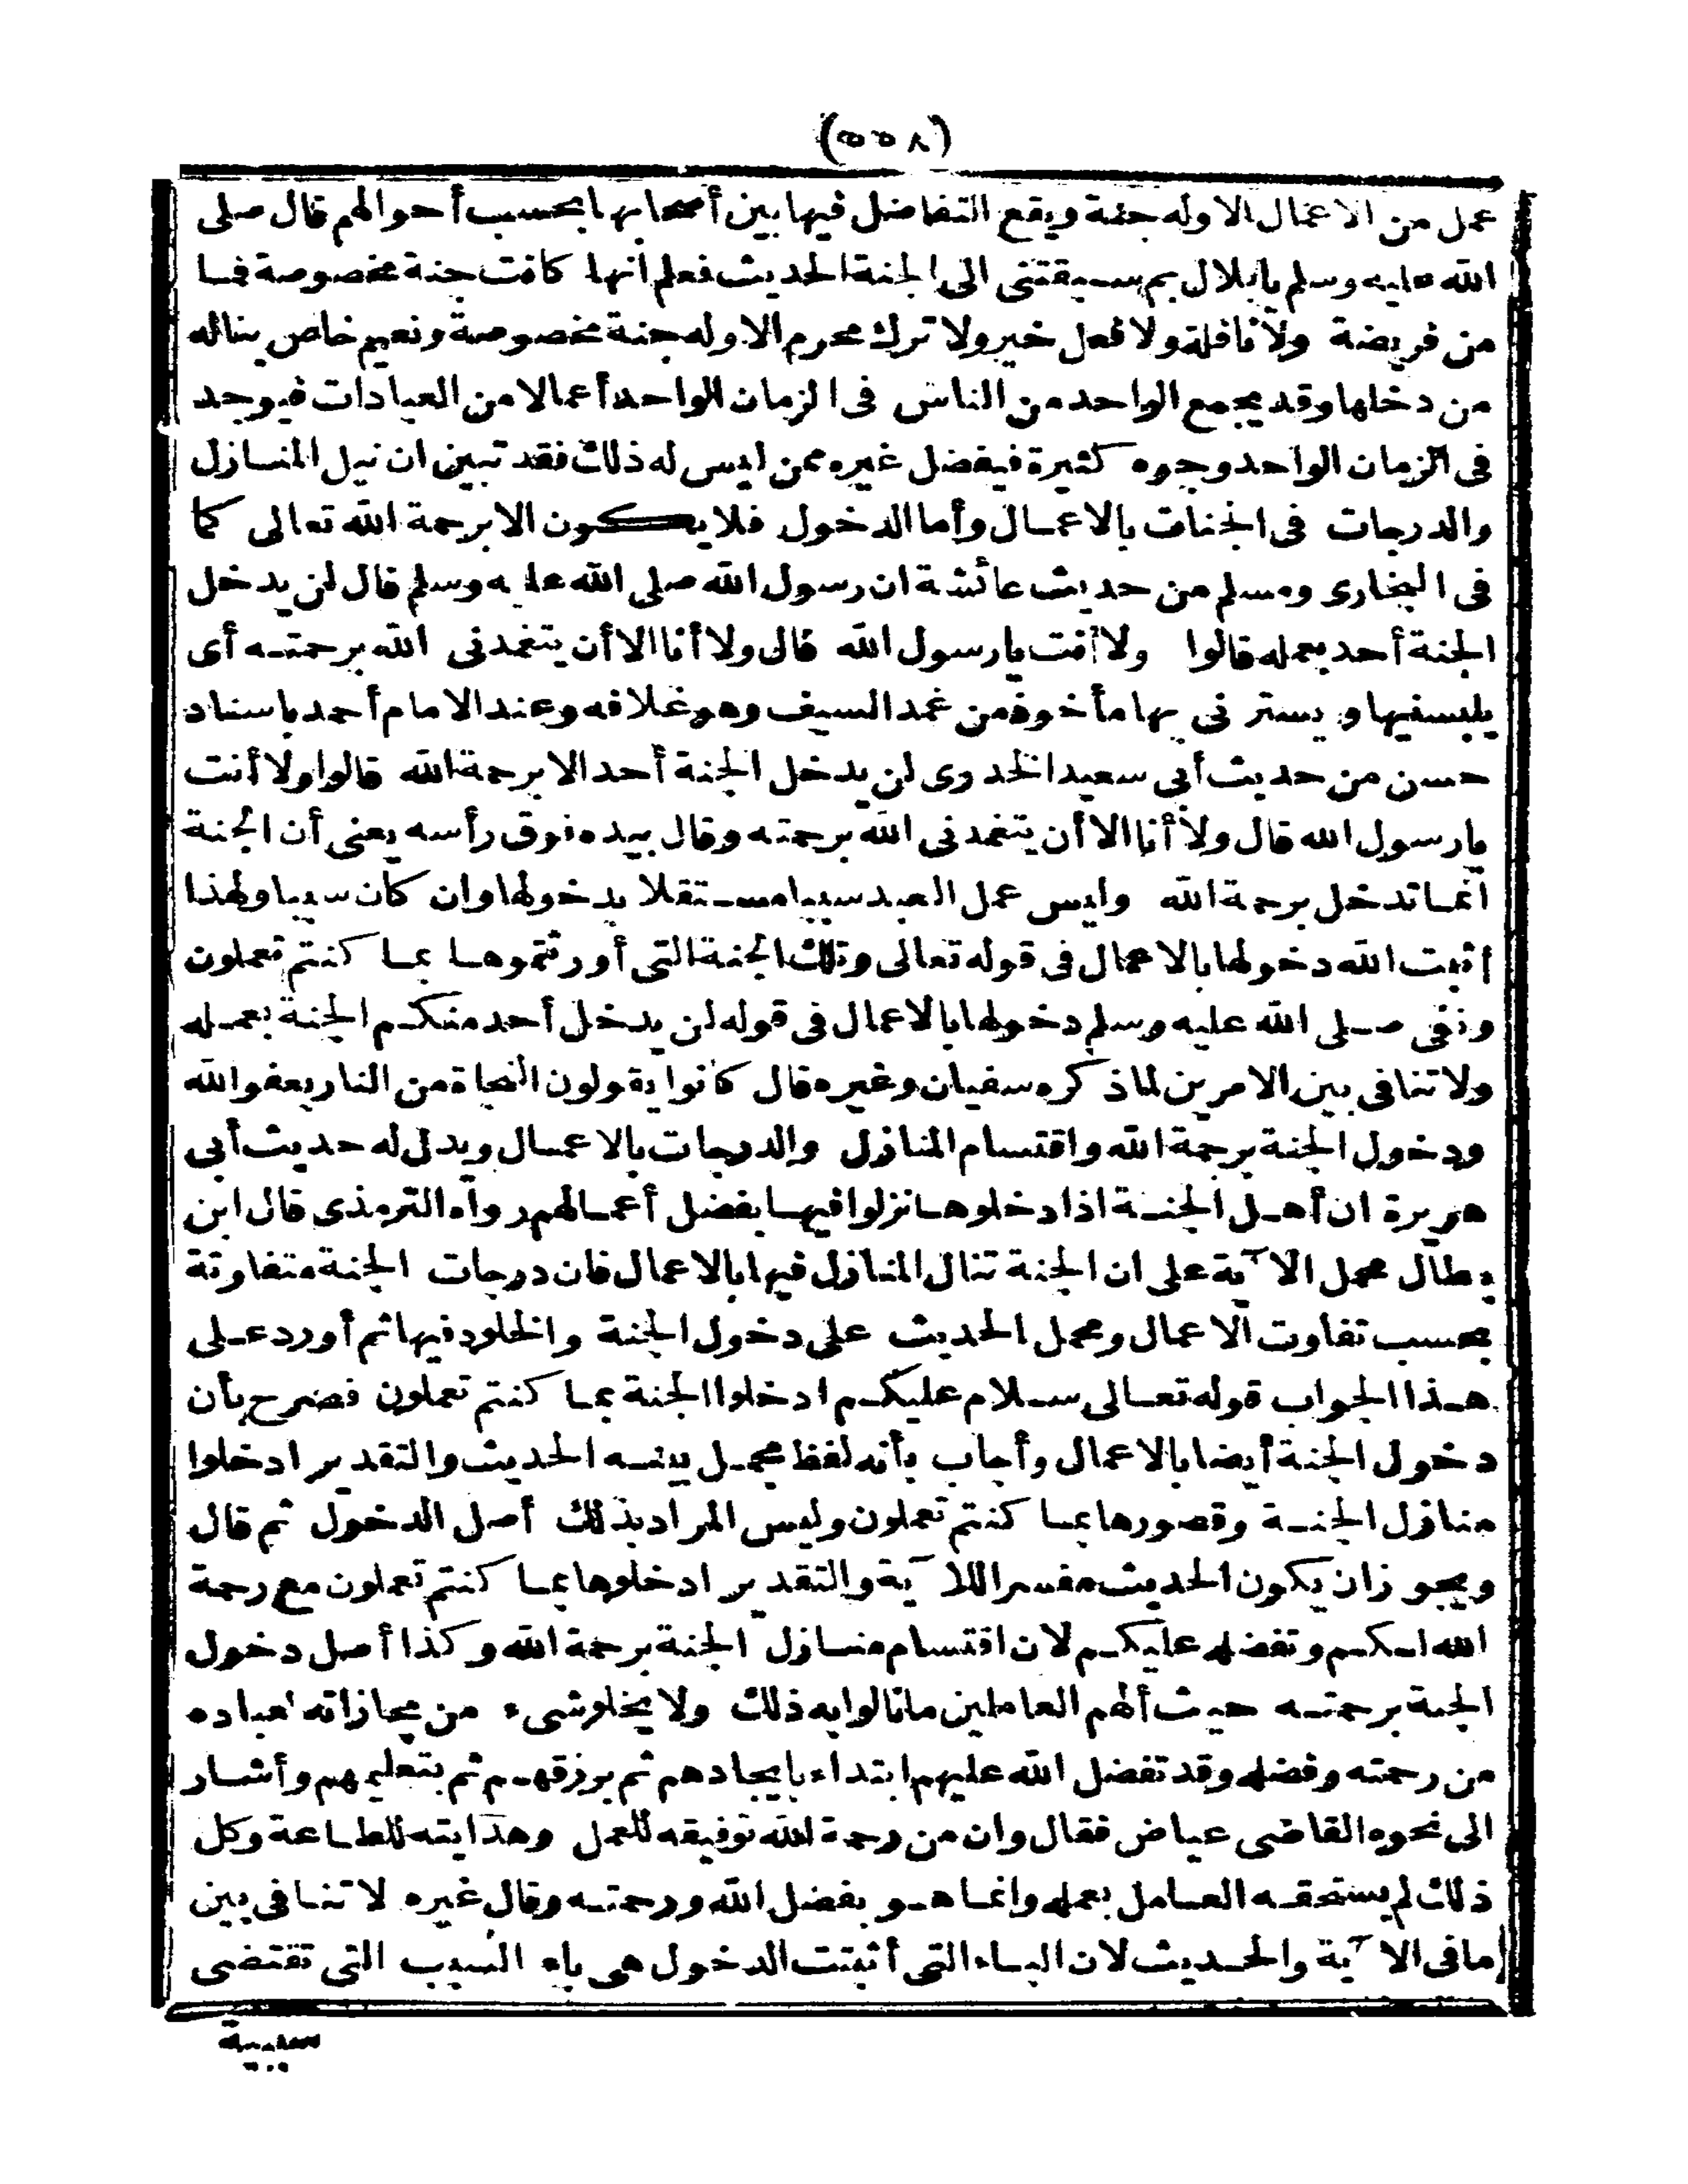 (٥٥٨)
عمل من الاعمال الا وله جنة ويقع التفاضل فيها بين أصحابها بحسب أحوالهم قال صلى
الله عليه وسلم يا بلال بم سبقتنى الى الجنة الحديث فعلم انها كانت جنة مخصوصة فما
من فريضة ولا نافلة ولا فعل خير ولا ترك محرم الا وله جنة مخصوصة ونعيم خاص يناله
من دخلها وقد يجمع الواحد من الناس فى الزمان الواحد أعمالا من العبادات فيوجد
فى الزمان الواحد وجوه كثيرة فيفضل غيره ممن ليس له ذلك فقد تبين ان نيل المنازل
والدرجات فى الجنات بالاعمال وأما الدخول فلا يكون الا برحمة الله تعالى كما
فى البخارى ومسلم من حديث عائشة ان رسول الله صلى الله عليه وسلم قال لن يدخل
الجنة أحد بعمله قالوا ولا أنت يارسول الله قال ولا أنا الا أن يتغمدنى الله برحمته أى
يلبسنيها ويسترنى بها مأخوذ من غمد السيف وهو غلافه وعند الامام أحمد باسناد
حسن من حديث أبى سعيد الخدرى لن يدخل الجنة أحد الا برحمة الله قالوا ولا أنت
يارسول الله قال ولا أنا الا أن يتغمدنى الله برحمته وقال بيده فوق رأسه يعنى أن الجنة
انما تدخل برحمة الله وليس عمل العبد سببا مستقلا بدخولها وان كان سببا ولهذا
أثبت الله دخولها بالاعمال فى قوله تعالى وتلك الجنة التى أورثتموها بما كنتم تعملون
ونفى صلى الله عليه وسلم دخولها بالاعمال فى قوله لن يدخل أحد منكم الجنة بعمله
ولا تنافى بين الامرين لما ذكره سفيان وغيره قال كانوا يقولون النجاة من النار بعفو الله
ودخول الجنة برحمة الله واقتسام المنازل والدرجات بالاعمال ويدل له حديث أبى
هريرة ان أهل الجنة اذا دخلوها نزلوا فيها بفضل أعمالهم رواه الترمذى قال ابن
بطال محمل الآية على ان الجنة تنال المنازل فيها بالاعمال فان درجات الجنة متفاوتة
بحسب تفاوت الاعمال ومحمل الحديث على دخول الجنة والخلود فيها ثم أورد على
هذا الجواب قوله تعالى سلام عليكم ادخلوا الجنة بما كنتم تعملون فصرح بأن
دخول الجنة أيضا بالاعمال وأجاب بأنه لفظ مجمل بينه الحديث والتقدير ادخلوا
منازل الجنة وقصورها بما كنتم تعملون وليس المراد بذلك أصل الدخول ثم قال
ويجوز ان يكون الحديث مفسرا للآية والتقدير ادخلوها بما كنتم تعملون مع رحمة
الله لكم وتفضله عليكم لان اقتسام منازل الجنة برحمة الله وكذا أصل دخول
الجنة برحمته حيث ألهم العاملين ما نالوا به ذلك ولا يخلو شىء من مجازاته لعباده
من رحمته وفضله وقد تفضل الله عليهم ابتداء بايجادهم ثم برزقهم ثم بتعليمهم وأشار
الى نحوه القاضى عياض فقال وان من رحمة الله توفيقه للعمل وهدايته للطاعة وكل
ذلك لم يستحقه العامل بعمله وانما هو بفضل الله ورحمته وقال غيره لا تنافى بين
مافى الآية والحديث لان الباء التى أثبتت الدخول هى باء السبب التى تقتضى
سببية